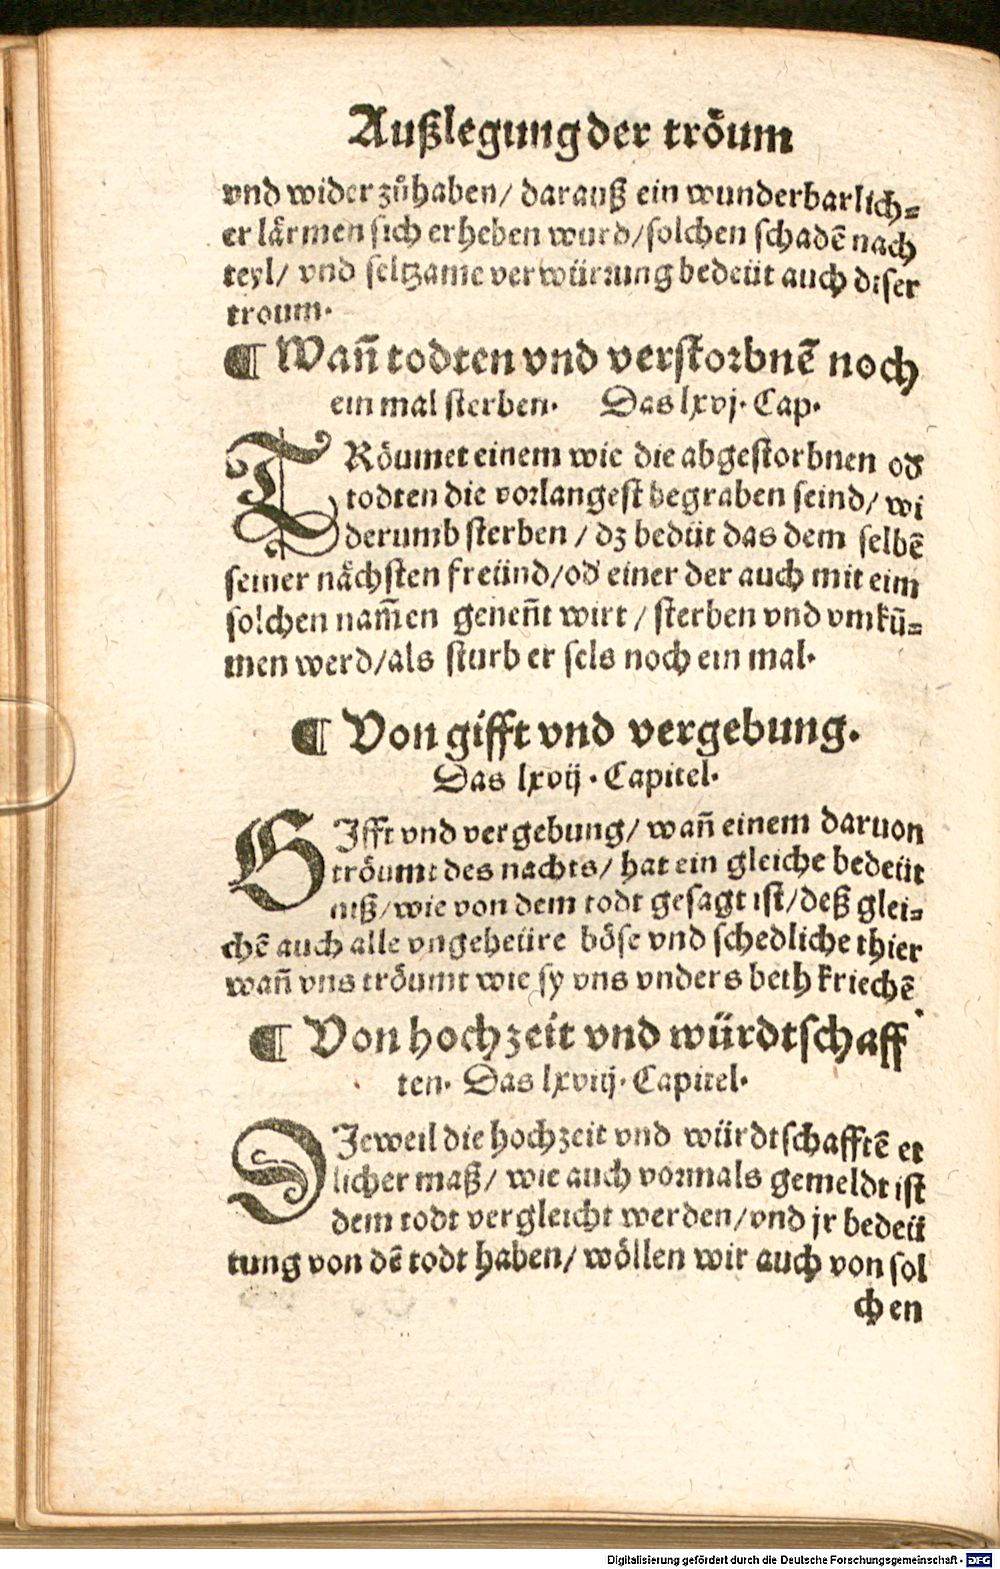 Außlegung der tröum
vnd wider zůhaben/ darauß ein wunderbarlich⸗
er lärmen sich erheben wurd/ solchen schadē nach
teyl/ vnd seltzame verwürrung bedeüt auch diser
troum.
¶ Wañ todten vnd verstorbnē noch
ein mal sterben. Das lxvj. Cap.
TRöumet einem wie die abgestorbnen od
todten die vorlangest begraben seind/ wi
derumb sterben / dz bedüt das dem selbē
seiner nächsten freünd/ od einer der auch mit eim
solchen nam̄en geneñt wirt / sterben vnd vmkū⸗
men werd/ als sturb er sels noch ein mal.
¶ Von gifft vnd vergebung.
Das lxvij. Capitel.
GIfft vnd vergebung/ wañ einem daruon
tröumt des nachts/ hat ein gleiche bedeüt
niß/ wie von dem todt gesagt ist/ deß glei⸗
chē auch alle vngeheüre böse vnd schedliche thier
wañ vns tröumt wie sy vns vnders beth kriechē
¶ Von hochzeit vnd würdtschaff
ten. Das lxviij. Capitel.
DIeweil die hochzeit vnd würdtschafftē et
licher maß/ wie auch vormals gemeldt ist
dem todt vergleicht werden/ vnd jr bedeü
tung von dē todt haben/ wöllen wir auch von sol
chen
Digitalisierung gefördert durch die Deutsche Forschungsgemeinschaft - DFG